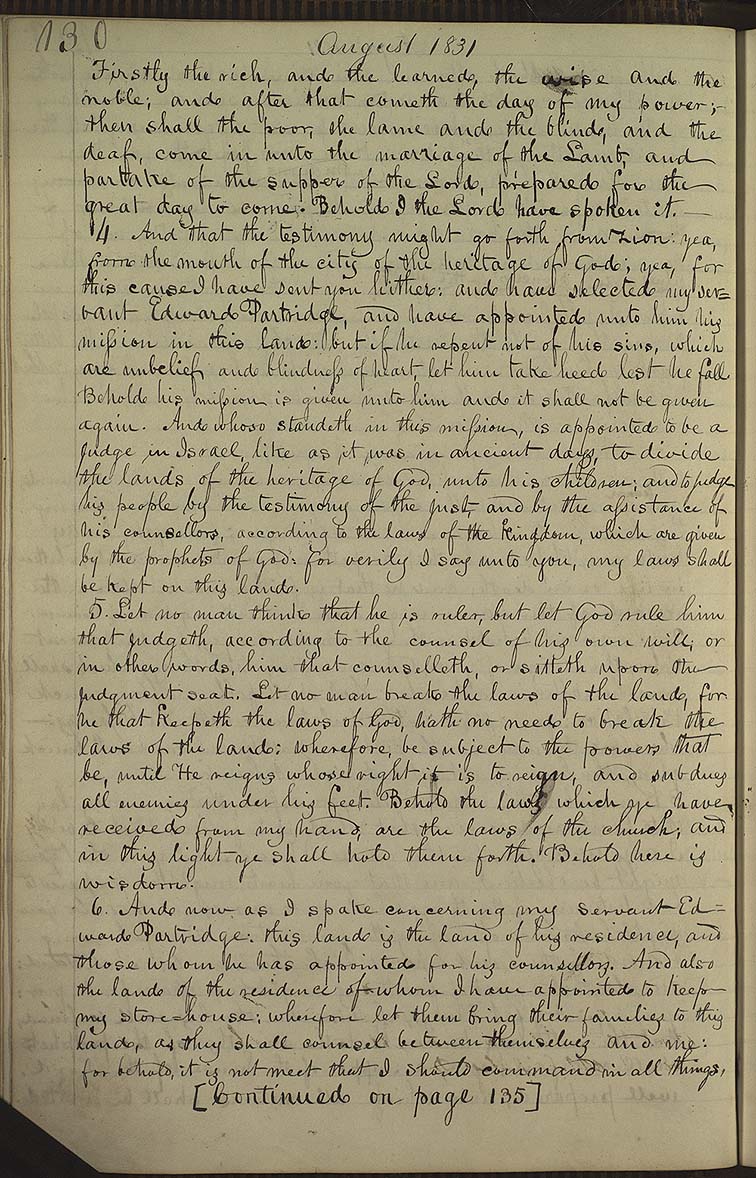 130
August 1831
Firstly the rich, and the learned, the wise and the
noble; and after that cometh the day of my power;-
then shall the poor, the lame and the blind, and the
deaf, come in unto the marriage of the Lamb, and
partake of the supper of the Lord, prepared for the
great day to come. Behold I the Lord have spoken it. —
4. And that the testimony might go forth from Zion: yea,
from the mouth of the city of the heritage of God; yea, for
this cause I have sent you hither: and have selected my ser=
vant Edward Partridge, and have appointed unto him his
mission in this land: but if he repent not of his sins, which
are unbelief and blindness of heart, let him take heed lest he fall
Behold his mission is given unto him and it shall not be given
again. And whoso standeth in this mission, is appointed to be a
judge in Israel, like as it was in ancient days, to divide
the lands of the heritage of God, unto his children; and to judge
his people by the testimony of the just, and by the assistance of
his counsellors, according to the laws of the Kingdom, which are given
by the prophets of God: for verily I say unto you, my laws shall
be kept on this land.
5. Let no man think that he is ruler, but let God rule him
that judgeth, according to the counsel of his own will; or
in other words, him that counselleth, or sitteth upon the
judgment seat. Let no man break the laws of the land, for
he that Keepeth the laws of God, hath no need to break the
laws of the land: wherefore, be subject to the powers that
be, until He reigns whose right it is to reign, and subdues
all enemies under his feet. Behold the laws which ye have
received from my hand, are the laws of the church; and
in this light ye shall hold them forth. Behold here is
wisdom.
6. And now as I spake concerning my servant Ed=
ward Partridge: this land is the land of his residence, and
those whom he has appointed for his counsellors. And also
the land of the residence of whom I have appointed to keep
my store=house; wherefore let them bring their families to this
land, as they shall counsel between themselves and me:
for behold, it is not meet that I should command in all things,
[Continued on page 135]